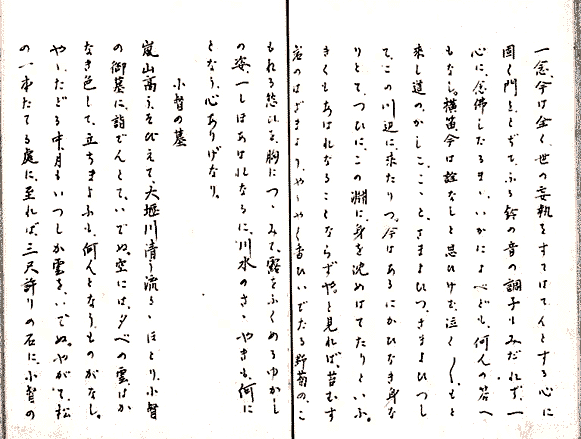 一念、今は全く世の妄執をすてはてんとする心に
固く門をとぢて、ふる鈴の音の調子もみだれず、一
心に、念佛したるまゝ、いかによべども、何んの答へ
もなし。横笛、今は詮なしと思ひけむ、泣く〳〵、もと
来し道の、かしこ、こゝと、さまよひつ、さまよひつし
て、この川辺に、来たりつ。今はあるにかひなき身な
りとて、つひに、この淵に、身を沈めはてたりといふ。
きくもあはれなることならずや、と見れば、苔むす
岩のはざまより、やうやく香ひいでたる野菊の、こ
もれる怨みを、胸につゝみて、露をふくめるゆかし
の姿、一しほあはれなるに、川水のさゝやきも、何に
となう、心ありげなり。
小督の墓
嵐山高うそびえて、大堰川清う流るゝほとり、小督
の御墓に、詣でんとて、いでぬ。空には、夕べの雲、はか
なき色して、立ちまよふも、何んとなう、ものがなし。
やゝたどる中、月もいつしか雲を、いでぬ。やがて、松
の一本たてる處に、至れば、三尺許りの石に、小督の